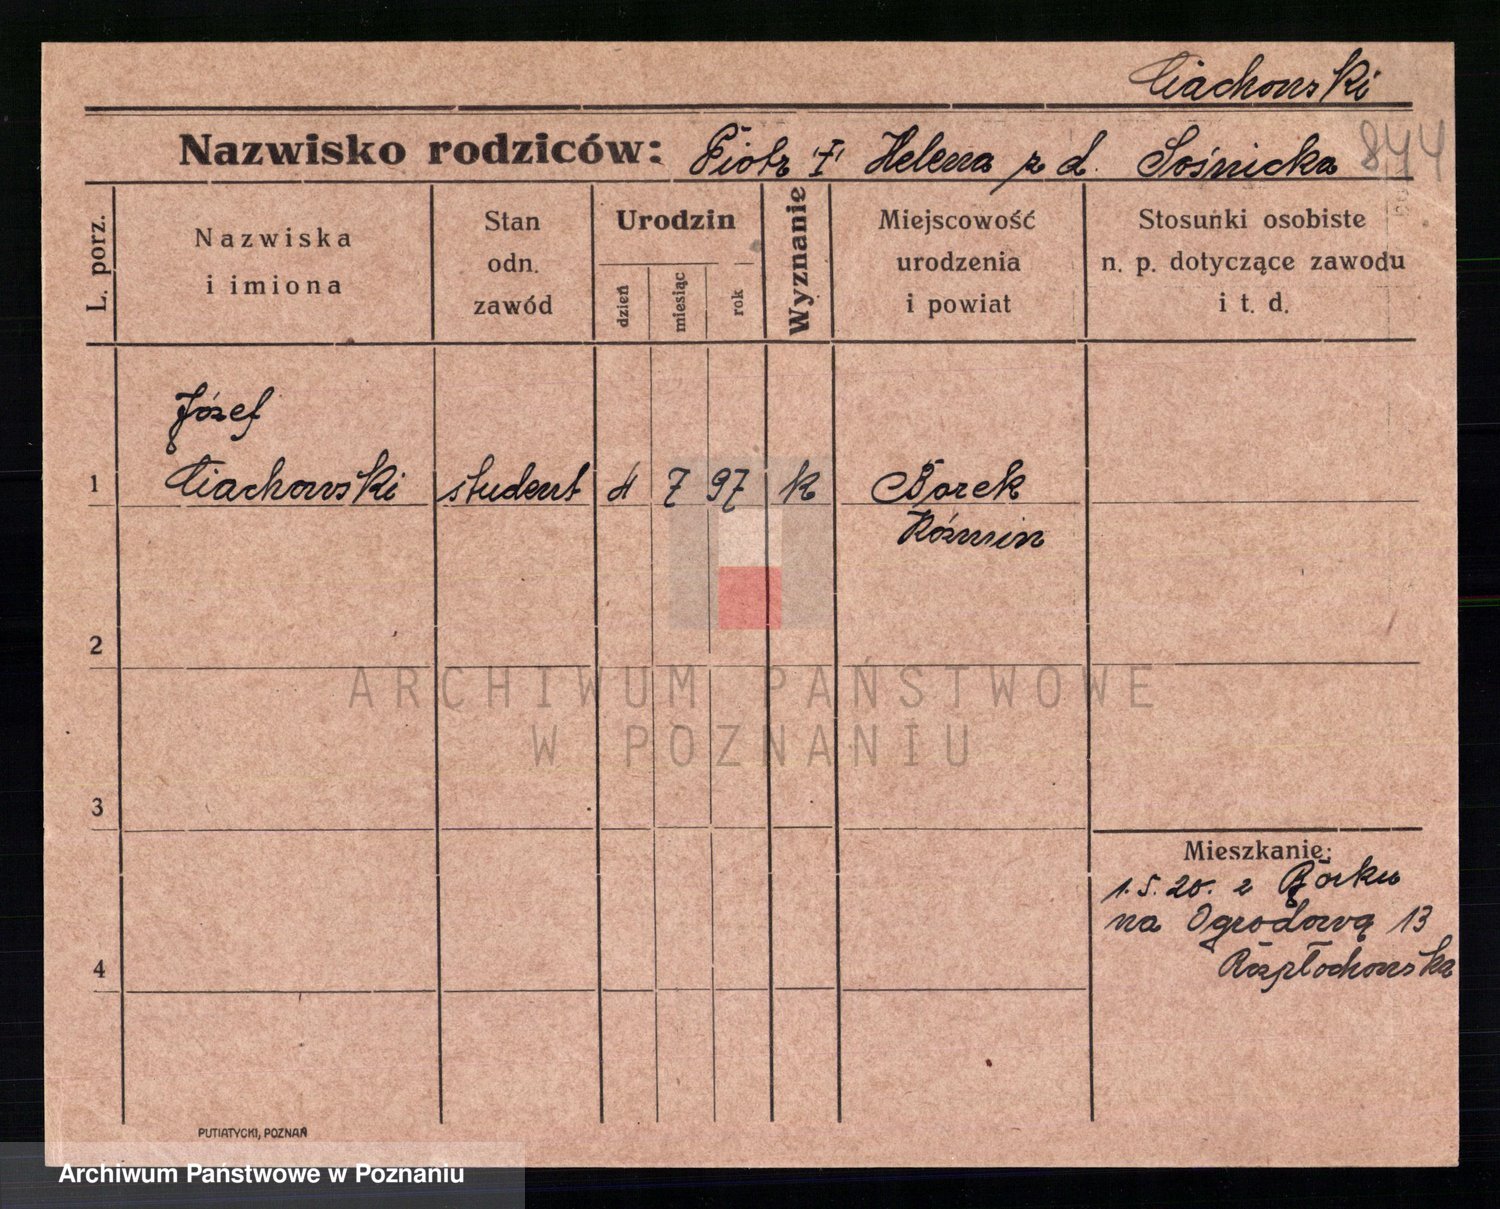 Ciachowski
Nazwisko rodziców: Piotr i Helena z d. Sośnicka
844
L. porz.
Nazwiska
i imiona
Stan
odn.
zawód
Urodzin
dzień
miesiąc
rok
Wyznanie
Miejscowość
urodzenia
i powiat
Stosunki osobiste
n. p. dotyczące zawodu
i t. d.
Józef
1 Ciachowski student 4 7 97 k Borek
Koźmin
2
ARCHIWUM PAŃSTWOWE
W POZNANIU
3
Mieszkanie:
1.5.20. z Borku
na Ogrodową 13
4
PUTIATYCKI, POZNAŃ
Archiwum Państwowe w Poznaniu